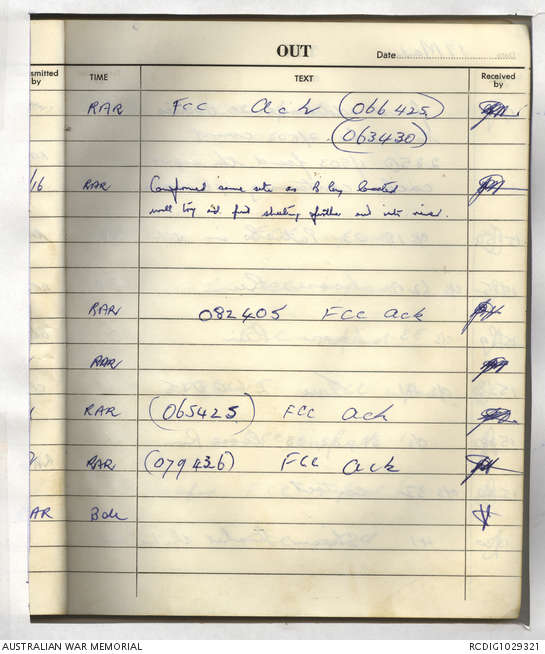 OUT
Date
smitted by TIME TEXT Received by
RAR FCC Ack (066425)
(063430)
/16 RAR Confirmed same site as B Coy located
will try and find sheeting further and into
RAR 082405 FCC ack
RAR
RAR (065425) FCC Ack
RAR (079436) FCC Ack
AR
AUSTRALIAN WAR MEMORIAL
RCDIG1029321